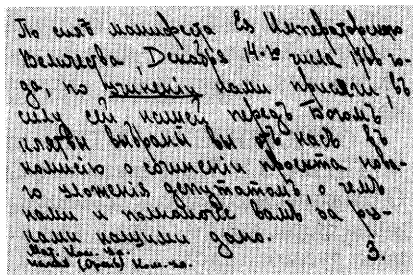 По силѣ манифеста Ея Императорскаго
Величества, Декабря 14-го числа 1766 го-
да, по учиненіи нами присяги, въ
силу ей нашей передъ Богомъ
клятвы выбранъ вы отъ насъ въ
комисію о сочиненіи проекта нова-
го уложенія депутатомъ, о чемъ
нами и полномочіе вамъ за ру-
ками нашими дано.
3.